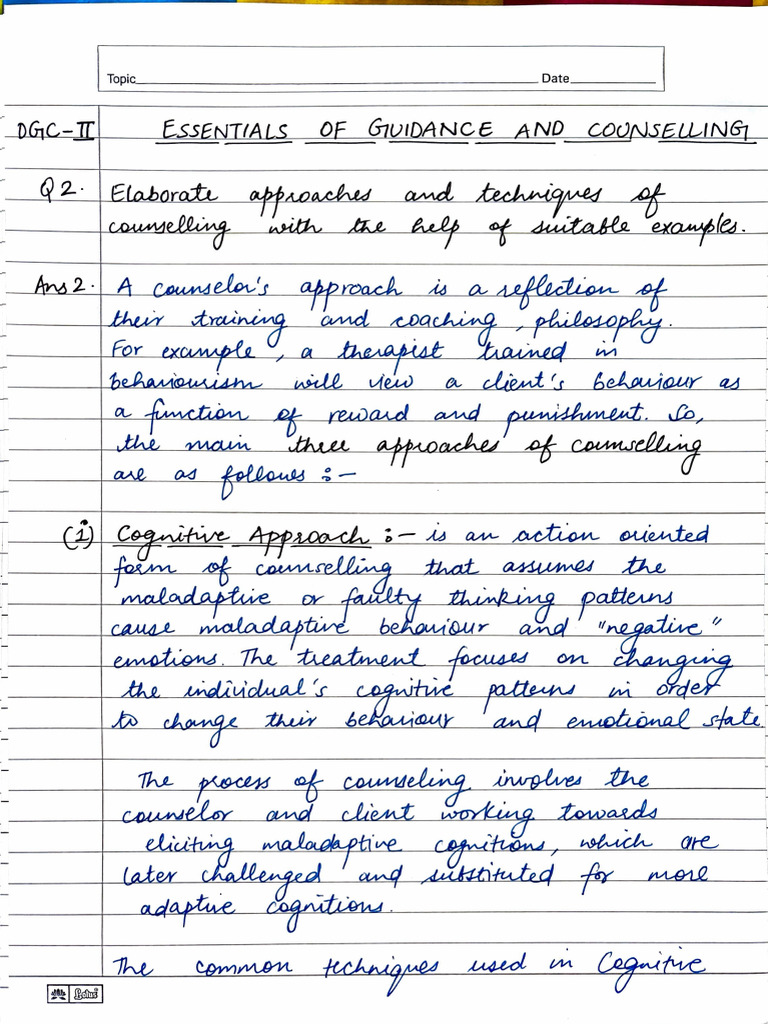 Topic Date
DGC-II ESSENTIALS OF GUIDANCE AND COUNSELLING
Q 2. Elaborate approaches and techniques of
counselling with the help of suitable examples.
Ans 2. A counselor's approach is a reflection of
their training and coaching, philosophy.
For example, a therapist trained in
behaviourism will view a client's behaviour as
a function of reward and punishment. So,
the main three approaches of counselling
are as follows :-
(i) Cognitive Approach :- is an action oriented
form of counselling that assumes the
maladaptive or faulty thinking patterns
cause maladaptive behaviour and "negative"
emotions. The treatment focuses on changing
the individual's cognitive patterns in order
to change their behaviour and emotional state
The process of counseling involves the
counselor and client working towards
eliciting maladaptive cognitions, which are
later challenged and substituted for more
adaptive cognitions.
The common techniques used in Cognitive
Lotus